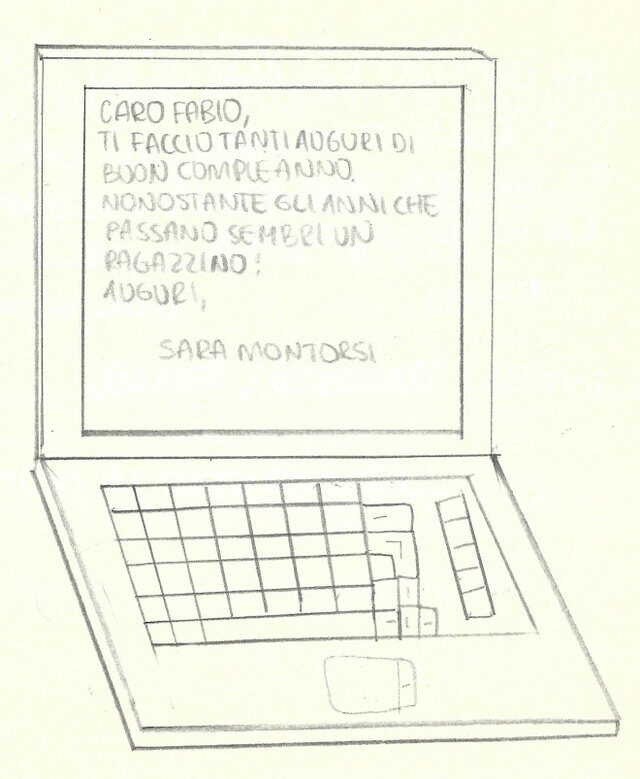 CARO FABIO,
TI FACCIO TANTI AUGURI DI
BUON COMPLEANNO.
NONOSTANTE GLI ANNI CHE
PASSANO SEMBRI UN
RAGAZZINO!
AUGURI,
SARA MONTORSI